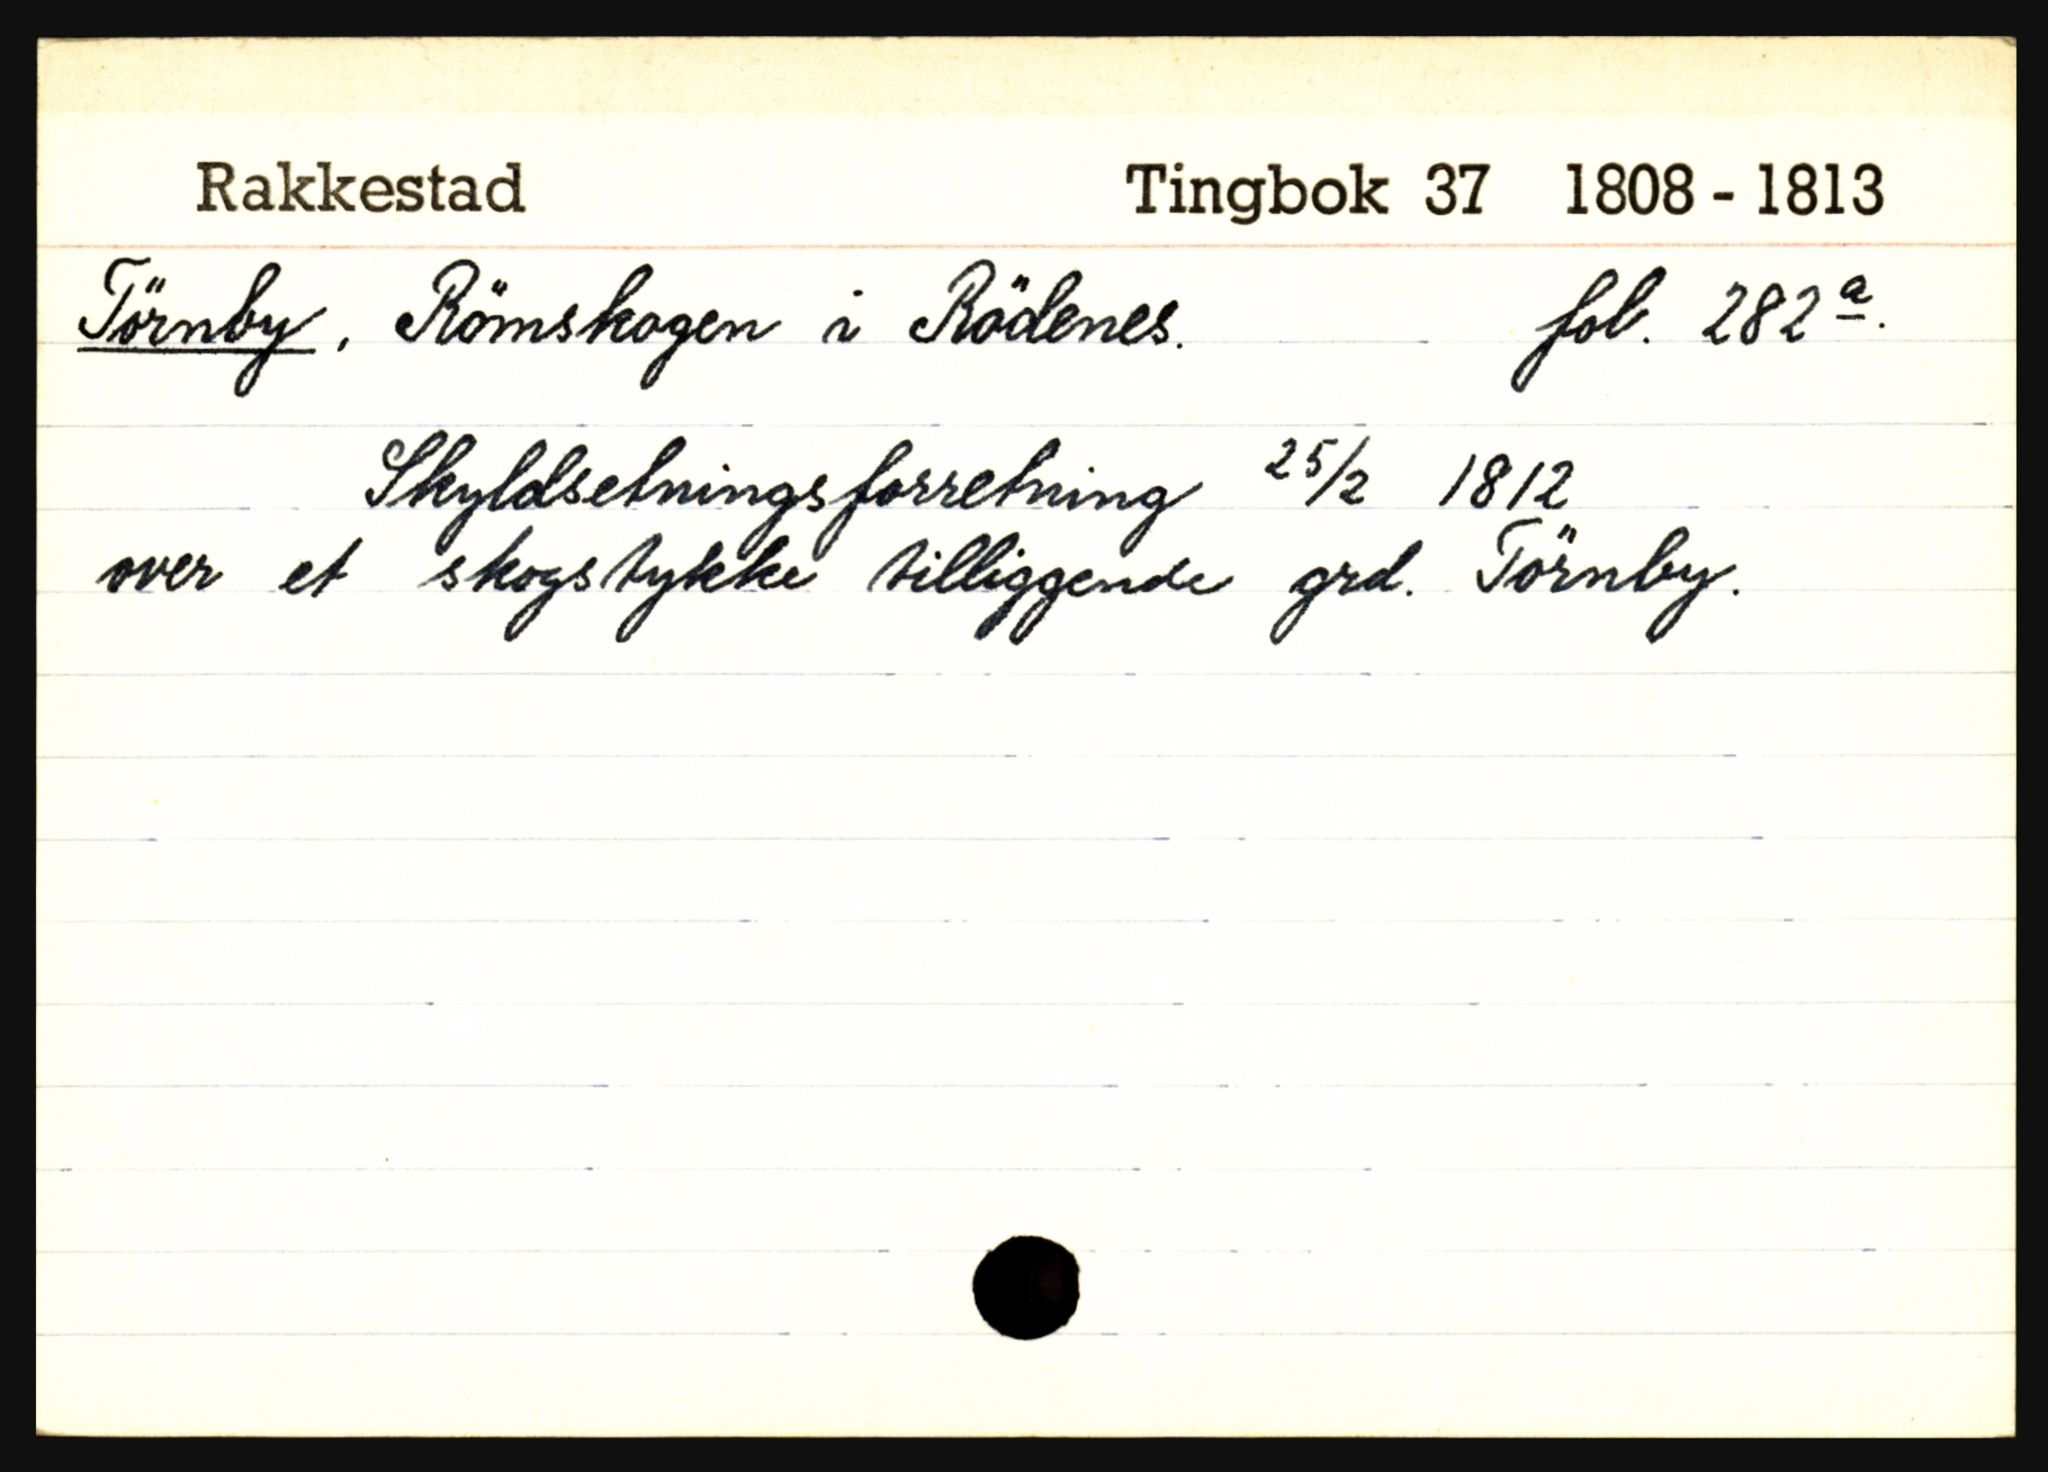 Rakkestad Tingbok 37 1808 - 1813
Törnby, Römskogen i Rödenes. fol. 282 a.
Skyldsetningsforretning 25/2 1812
over et skogstykke tilliggende grd. Törnby.